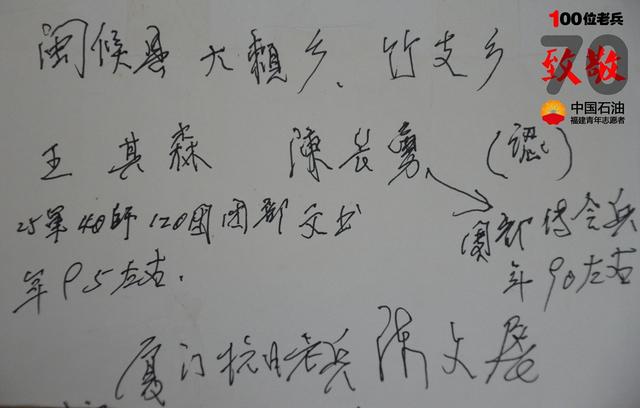 100位老兵
致敬
70
中国石油
福建青年志愿者
闽候县 大赖乡、竹支乡
王其森 陳長勇 (認)
25军40師120團團部文书
年95左右.
團部传令兵
年90左右
厦门抗日老兵陳文居